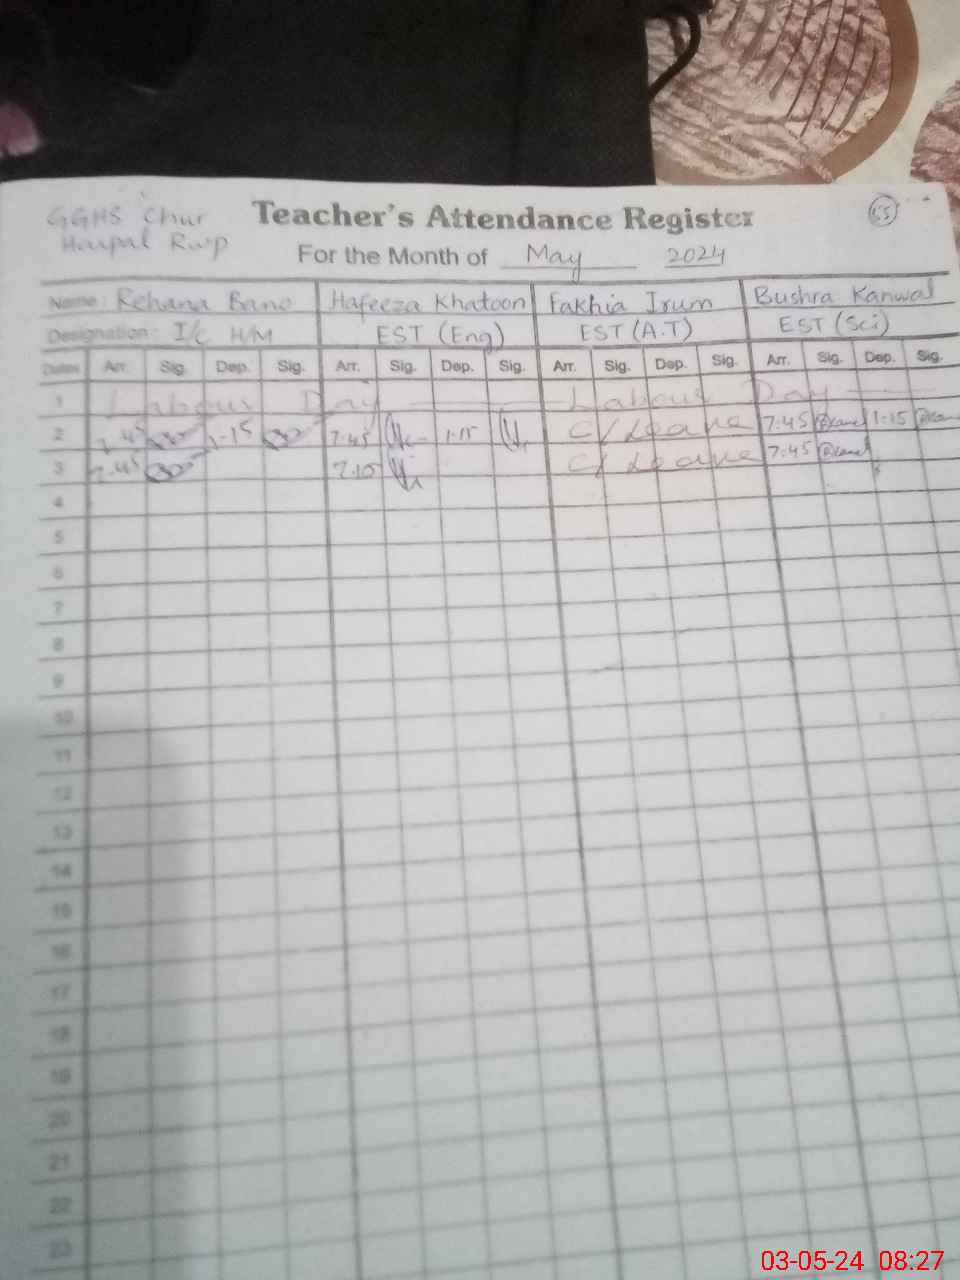 GGHS Chur
Harpal Rwp
Teacher's Attendance Register
55
For the Month of May 2024
Name: Rehana Bano Hafeeza Khatoon Fakhia Irum Bushra Kanwal
Designation: I/C H/M EST (Eng) EST (A.T) EST (Sci)
Dates Arr. Sig. Dep. Sig. Arr. Sig. Dep. Sig. Arr. Sig. Dep. Sig. Arr. Sig. Dep. Sig.
1 Labour Day Labour Day
2 7.45 1-15 7:45 1-15 C/Leave 7:45 1-15
3 7.45 7:10 C/Leave 7:45
4
5
6
7
8
9
10
11
12
13
14
15
16
17
18
19
20
21
22
23
03-05-24 08:27